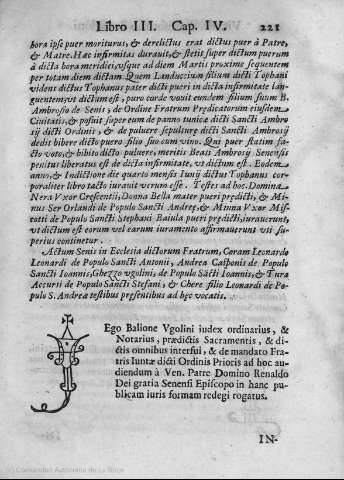 Libro III. Cap. IV. 221
hora ipse puer moriturus, & derelictus erat dictus puer à Patre,
& Matre. Hæc infirmitas durauit, & stetit super dictum puerum
à dicta hora meridiei, vsque ad diem Martis proximè sequentem
per totam diem dictam. Quem Landuccium filium dicti Tophani
videns dictus Tophanus pater dicti pueri in dicta infirmitate lan-
guentem, vt dictum est, puro corde vouit eundem filium suum B.
Ambrosio de Senis, de Ordine Fratrum Prædicatorum eiusdem
Ciuitatis, & posuit super eum de panno tunicæ dicti Sancti Ambro
sij dicti Ordinis, & de puluere sepulturæ dicti Sancti Ambrosij
dedit bibere dicto puero filio suo cum vino. Qui puer statim fac-
to voto, & bibito dicto puluere, meritis Beati Ambrosij Senensis
penitus liberatus est de dicta infirmitate, vt dictum est. Eodem
anno, & Indictione die quarto mensis Iunij dictus Tophanus cor-
poraliter libro tacto iurauit verum esse. Testes ad hoc. Domina
Nera Vxor Crescentij, Donna Bella mater pueri prædicti, & Mi-
nus Ser Orlandi de Populo Sancti Andreæ, & Minna Vxor Mis-
cotti de Populo Sancti Stephani Baiula pueri prædicti, iurauerunt,
vt dictum est eorum vel earum iuramento affirmauerunt vti su-
perius continetur.
Actum Senis in Ecclesia dictorum Fratrum, Coram Leonardo
Leonardi de Populo Sancti Antonij, Andrea Cassonis de Populo
Sancti Ioannis, Ghezzo vgolini, de Populo Sācti Ioannis, & Tura
Accursi de Populo Sancti Stefani, & Chere filio Leonardi de Po-
pulo S. Andreæ testibus presentibus ad hęc vocatis.
Ego Balione Vgolini iudex ordinarius, &
Notarius, prædictis Sacramentis, & di-
ctis omnibus interfui, & de mandato Fra-
tris Iuntæ dicti Ordinis Prioris ad hoc au-
diendum à Ven. Patre Domino Renaldo
Dei gratia Senensi Episcopo in hanc pu-
blicam iuris formam redegi rogatus.
IN-
(c) Comunidad Autónoma de La Rioja